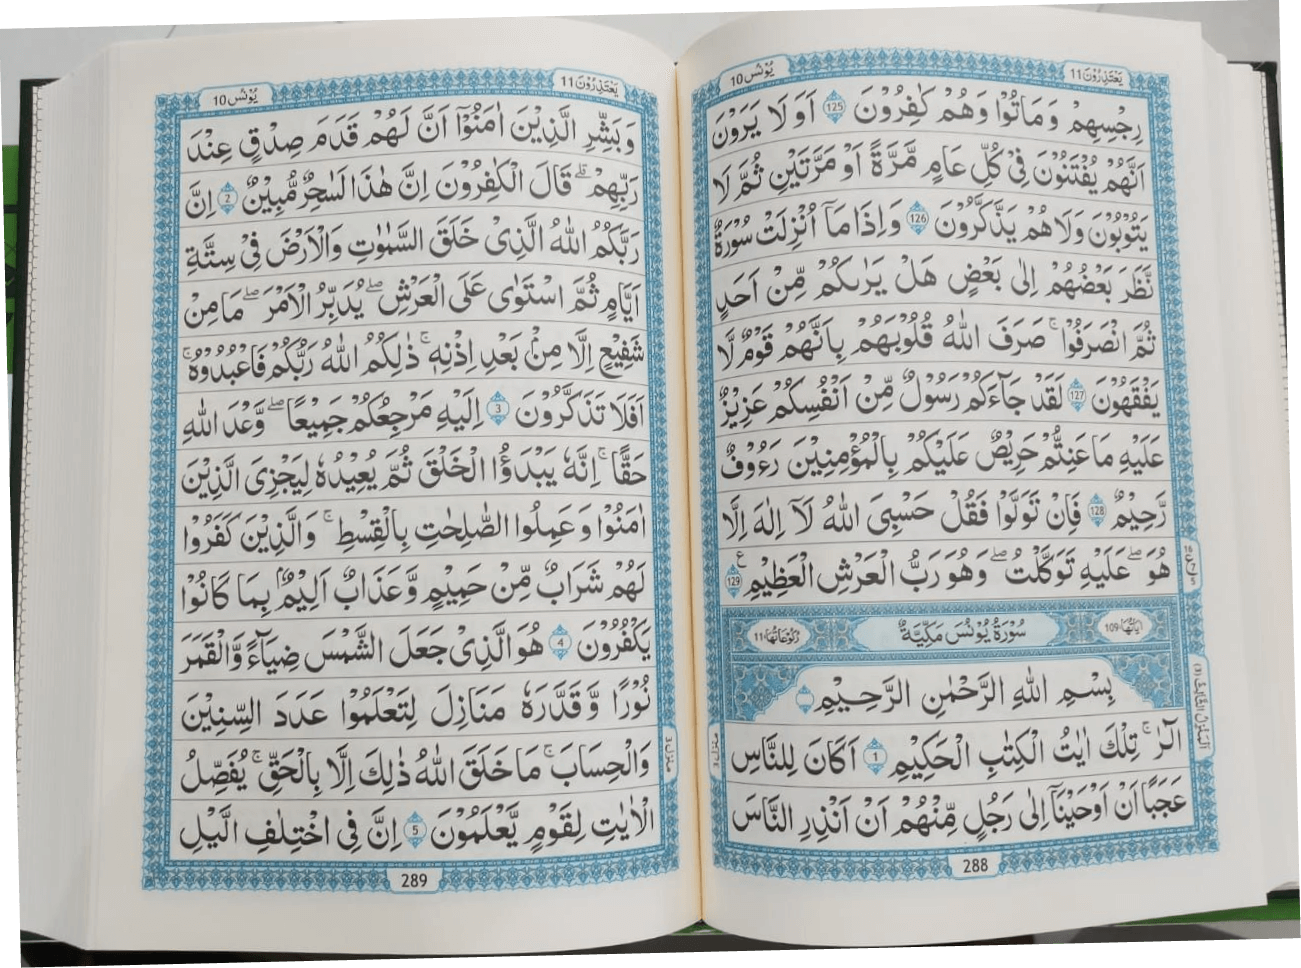 يَعْتَذِرُوْنَ 11
يُوْنُس 10
رِجْسِهِمْ وَ مَاتُوْا وَ هُمْ كٰفِرُوْنَ 125 اَوَ لَا يَرَوْنَ
اَنَّهُمْ يُفْتَنُوْنَ فِيْ كُلِّ عَامٍ مَّرَّةً اَوْ مَرَّتَيْنِ ثُمَّ لَا
يَتُوْبُوْنَ وَلَا هُمْ يَذَّكَّرُوْنَ 126 وَ اِذَا مَاۤ اُنْزِلَتْ سُوْرَةٌ
نَّظَرَ بَعْضُهُمْ اِلٰى بَعْضٍ هَلْ يَرٰىكُمْ مِّنْ اَحَدٍ
ثُمَّ انْصَرَفُوْا ۚ صَرَفَ اللّٰهُ قُلُوْبَهُمْ بِاَنَّهُمْ قَوْمٌ لَّا
يَفْقَهُوْنَ 127 لَقَدْ جَآءَكُمْ رَسُوْلٌ مِّنْ اَنْفُسِكُمْ عَزِيْزٌ
عَلَيْهِ مَا عَنِتُّمْ حَرِيْصٌ عَلَيْكُمْ بِالْمُؤْمِنِيْنَ رَءُوْفٌ
رَّحِيْمٌ 128 فَاِنْ تَوَلَّوْا فَقُلْ حَسْبِيَ اللّٰهُ لَاۤ اِلٰهَ اِلَّا
هُوَ ۖ عَلَيْهِ تَوَكَّلْتُ ۖ وَهُوَ رَبُّ الْعَرْشِ الْعَظِيْمِ 129 ع
اٰيَاتُهَا 109 سُوْرَةُ يُوْنُسَ مَكِّيَّةٌ رُكُوْعَاتُهَا 11
بِسْمِ اللّٰهِ الرَّحْمٰنِ الرَّحِيْمِ
الٓرٰ ۚ تِلْكَ اٰيٰتُ الْكِتٰبِ الْحَكِيْمِ 1 اَكَانَ لِلنَّاسِ
عَجَبًا اَنْ اَوْحَيْنَاۤ اِلٰى رَجُلٍ مِّنْهُمْ اَنْ اَنْذِرِ النَّاسَ
288
يَعْتَذِرُوْنَ 11
يُوْنُس 10
وَ بَشِّرِ الَّذِيْنَ اٰمَنُوْۤا اَنَّ لَهُمْ قَدَمَ صِدْقٍ عِنْدَ
رَبِّهِمْ ۗ قَالَ الْكٰفِرُوْنَ اِنَّ هٰذَا لَسٰحِرٌ مُّبِيْنٌ 2 اِنَّ
رَبَّكُمُ اللّٰهُ الَّذِيْ خَلَقَ السَّمٰوٰتِ وَالْاَرْضَ فِيْ سِتَّةِ
اَيَّامٍ ثُمَّ اسْتَوٰى عَلَى الْعَرْشِ ۖ يُدَبِّرُ الْاَمْرَ ۖ مَا مِنْ
شَفِيْعٍ اِلَّا مِنْۢ بَعْدِ اِذْنِهٖ ۚ ذٰلِكُمُ اللّٰهُ رَبُّكُمْ فَاعْبُدُوْهُ ۚ
اَفَلَا تَذَكَّرُوْنَ 3 اِلَيْهِ مَرْجِعُكُمْ جَمِيْعًا ۖ وَعْدَ اللّٰهِ
حَقًّا ۚ اِنَّهٗ يَبْدَؤُا الْخَلْقَ ثُمَّ يُعِيْدُهٗ لِيَجْزِيَ الَّذِيْنَ
اٰمَنُوْا وَ عَمِلُوا الصّٰلِحٰتِ بِالْقِسْطِ ۚ وَالَّذِيْنَ كَفَرُوْا
لَهُمْ شَرَابٌ مِّنْ حَمِيْمٍ وَّعَذَابٌ اَلِيْمٌۢ بِمَا كَانُوْا
يَكْفُرُوْنَ 4 هُوَ الَّذِيْ جَعَلَ الشَّمْسَ ضِيَآءً وَّالْقَمَرَ
نُوْرًا وَّ قَدَّرَهٗ مَنَازِلَ لِتَعْلَمُوْا عَدَدَ السِّنِيْنَ
وَالْحِسَابَ ۚ مَا خَلَقَ اللّٰهُ ذٰلِكَ اِلَّا بِالْحَقِّ ۚ يُفَصِّلُ
الْاٰيٰتِ لِقَوْمٍ يَّعْلَمُوْنَ 5 اِنَّ فِى اخْتِلٰفِ الَّيْلِ
منزل 3
289